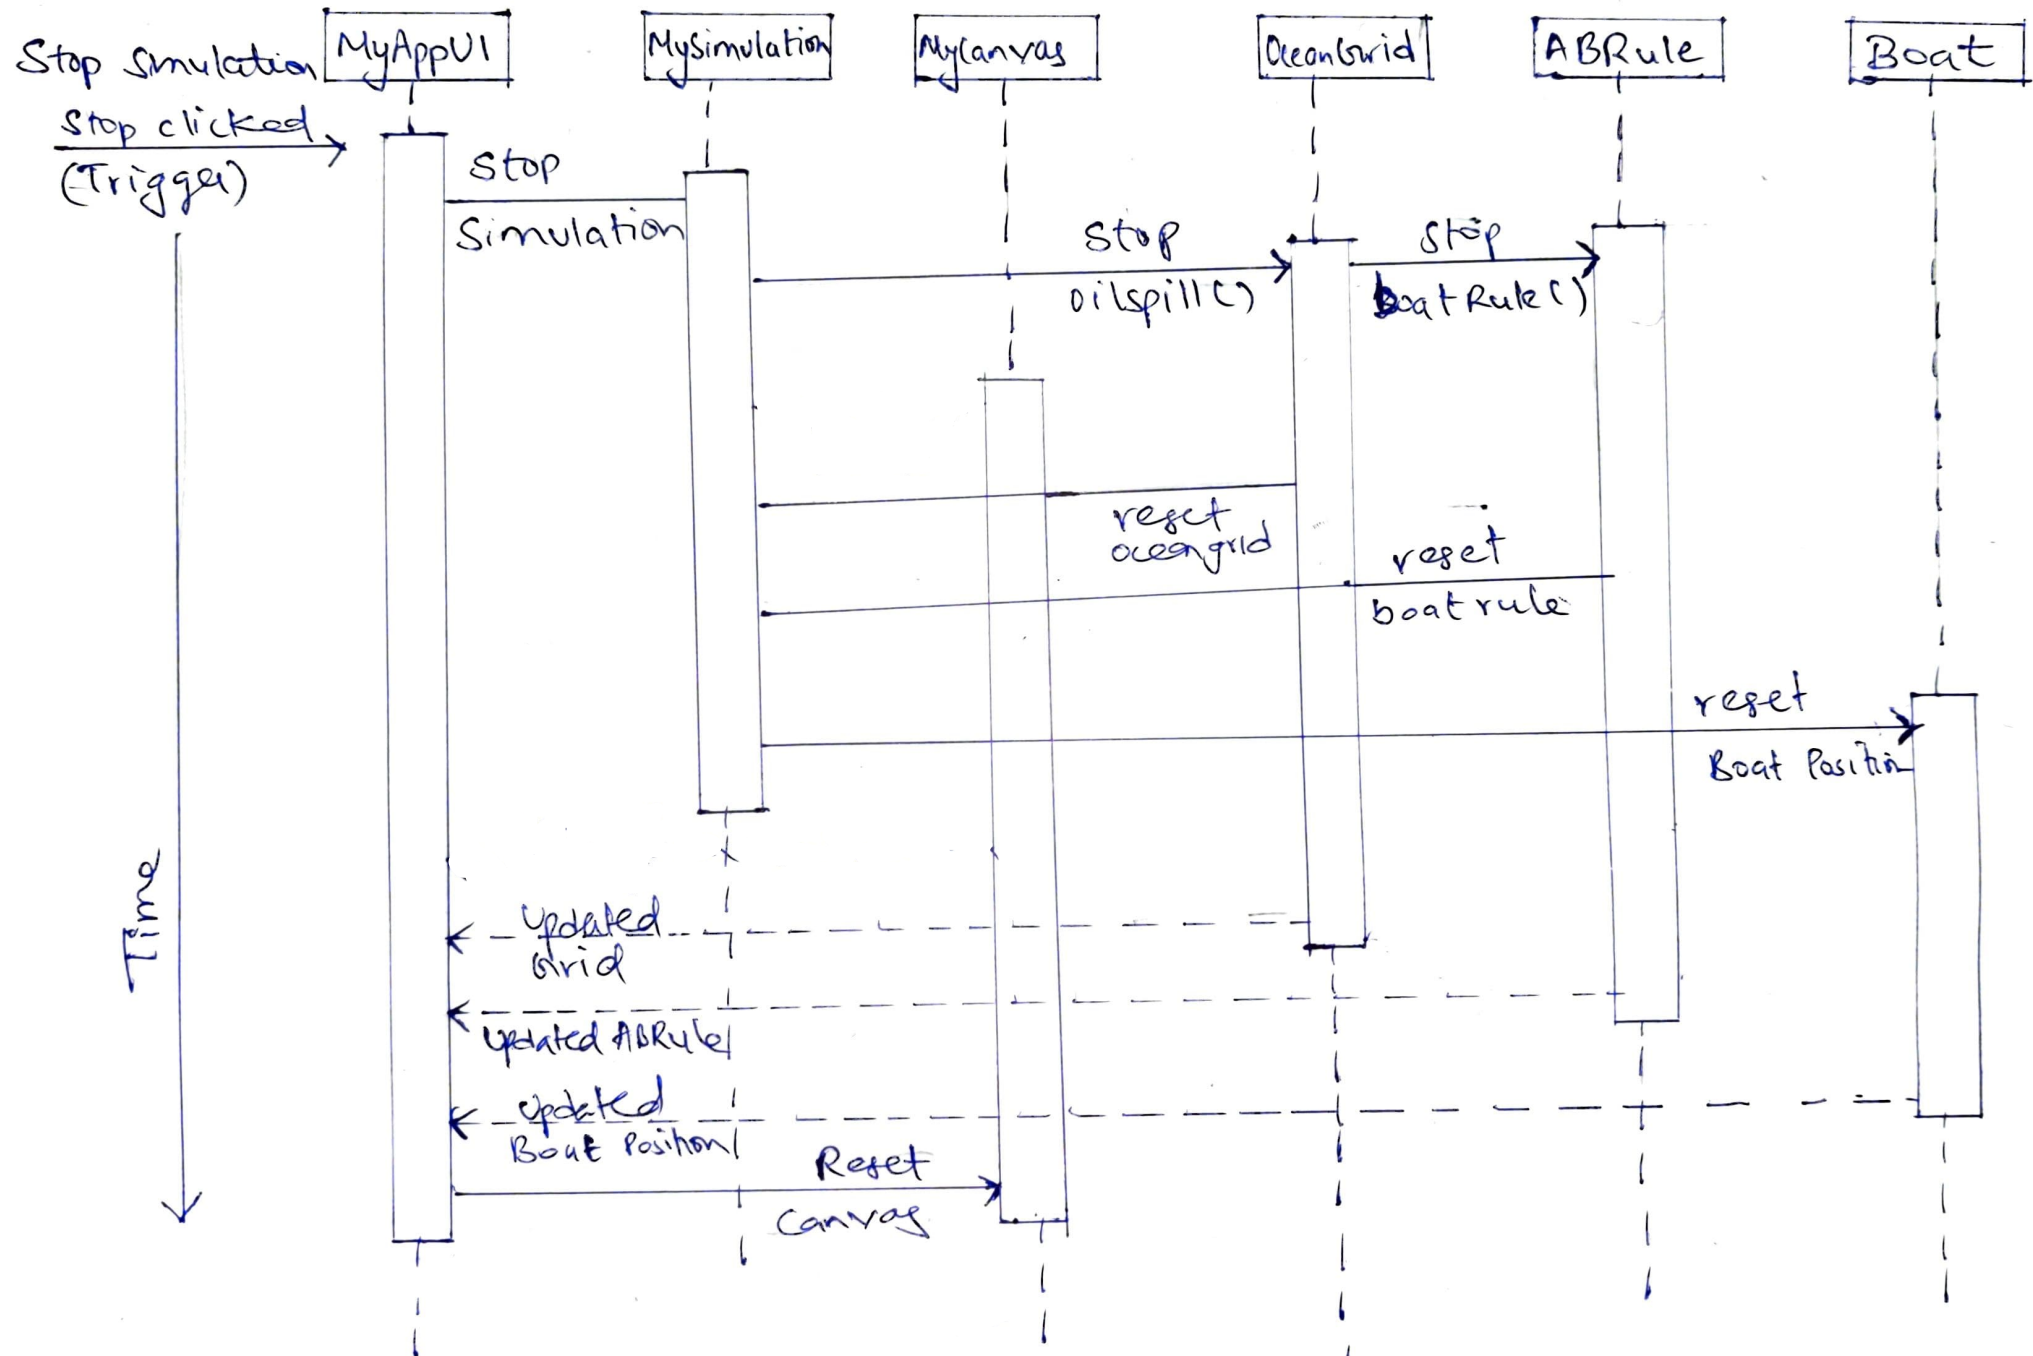 Stop Simulation
MyAppUI
MySimulation
MyCanvas
OceanGrid
ABRule
Boat
Stop clicked
(Trigger)
Stop
Simulation
Stop
oilspill()
Stop
boatRule()
reset
oceangrid
reset
boatrule
reset
Boat Position
Time
Updated
Grid
Updated ABRule
Updated
Boat Position
Reset
Canvas